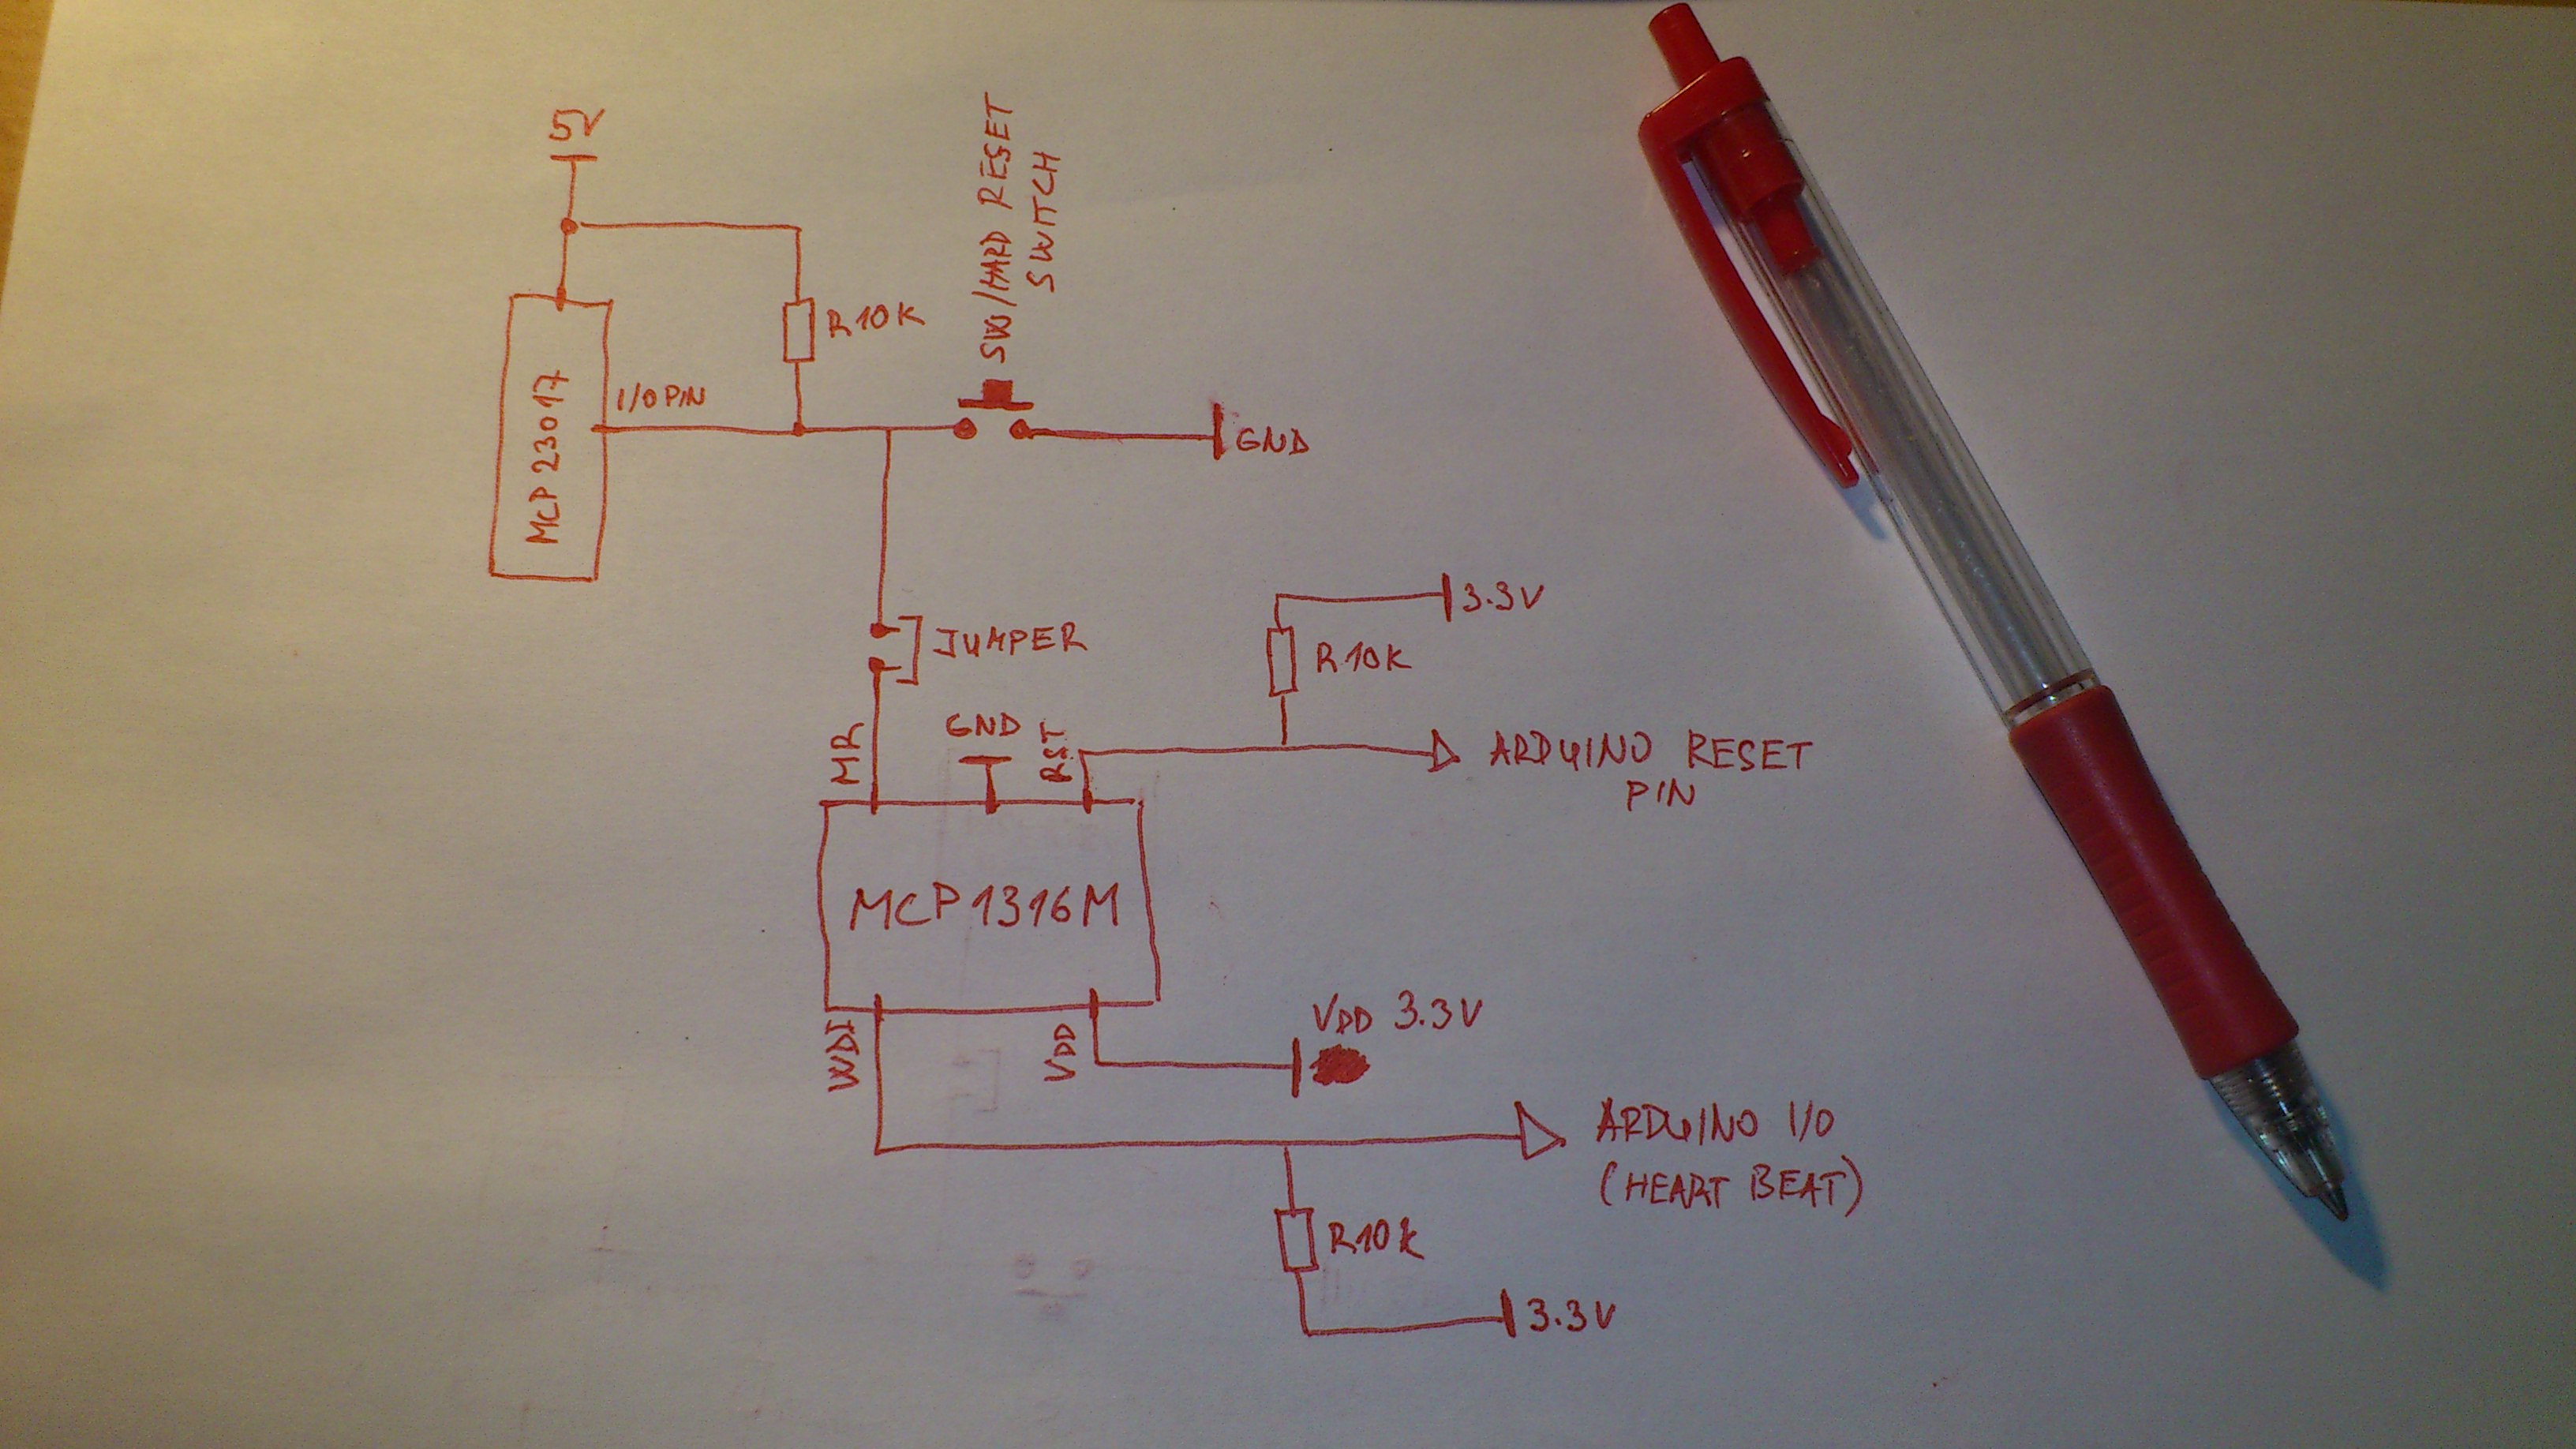 5V
SW/HARD RESET
SWITCH
R10K
I/O PIN
MCP23017
GND
3.3V
JUMPER
R10K
MR
GND
RST
ARDUINO RESET
PIN
MCP1316M
WDI
VDD
VDD 3.3V
ARDUINO I/O
(HEART BEAT)
R10K
3.3V